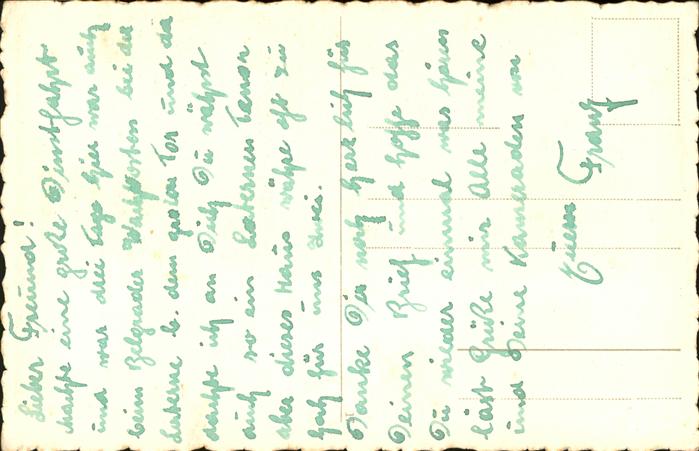 Lieber Freund!
machte eine große Dinstfahrt
und war drei Tage hier war auch
beim Belgrader Wachposten bei der
Laterne b. dem großen Tor und da
dachte ich an Dich Du wärst
auch so ein Laternen
aber dieses Haus oft zu
für uns zwei.
Danke Dir noch herzlich für
Deinen Brief und hoffe das
Du wieder einmal was hören
läst Grüße mir Alle meine
und Deine Kameraden von
Euern Franz